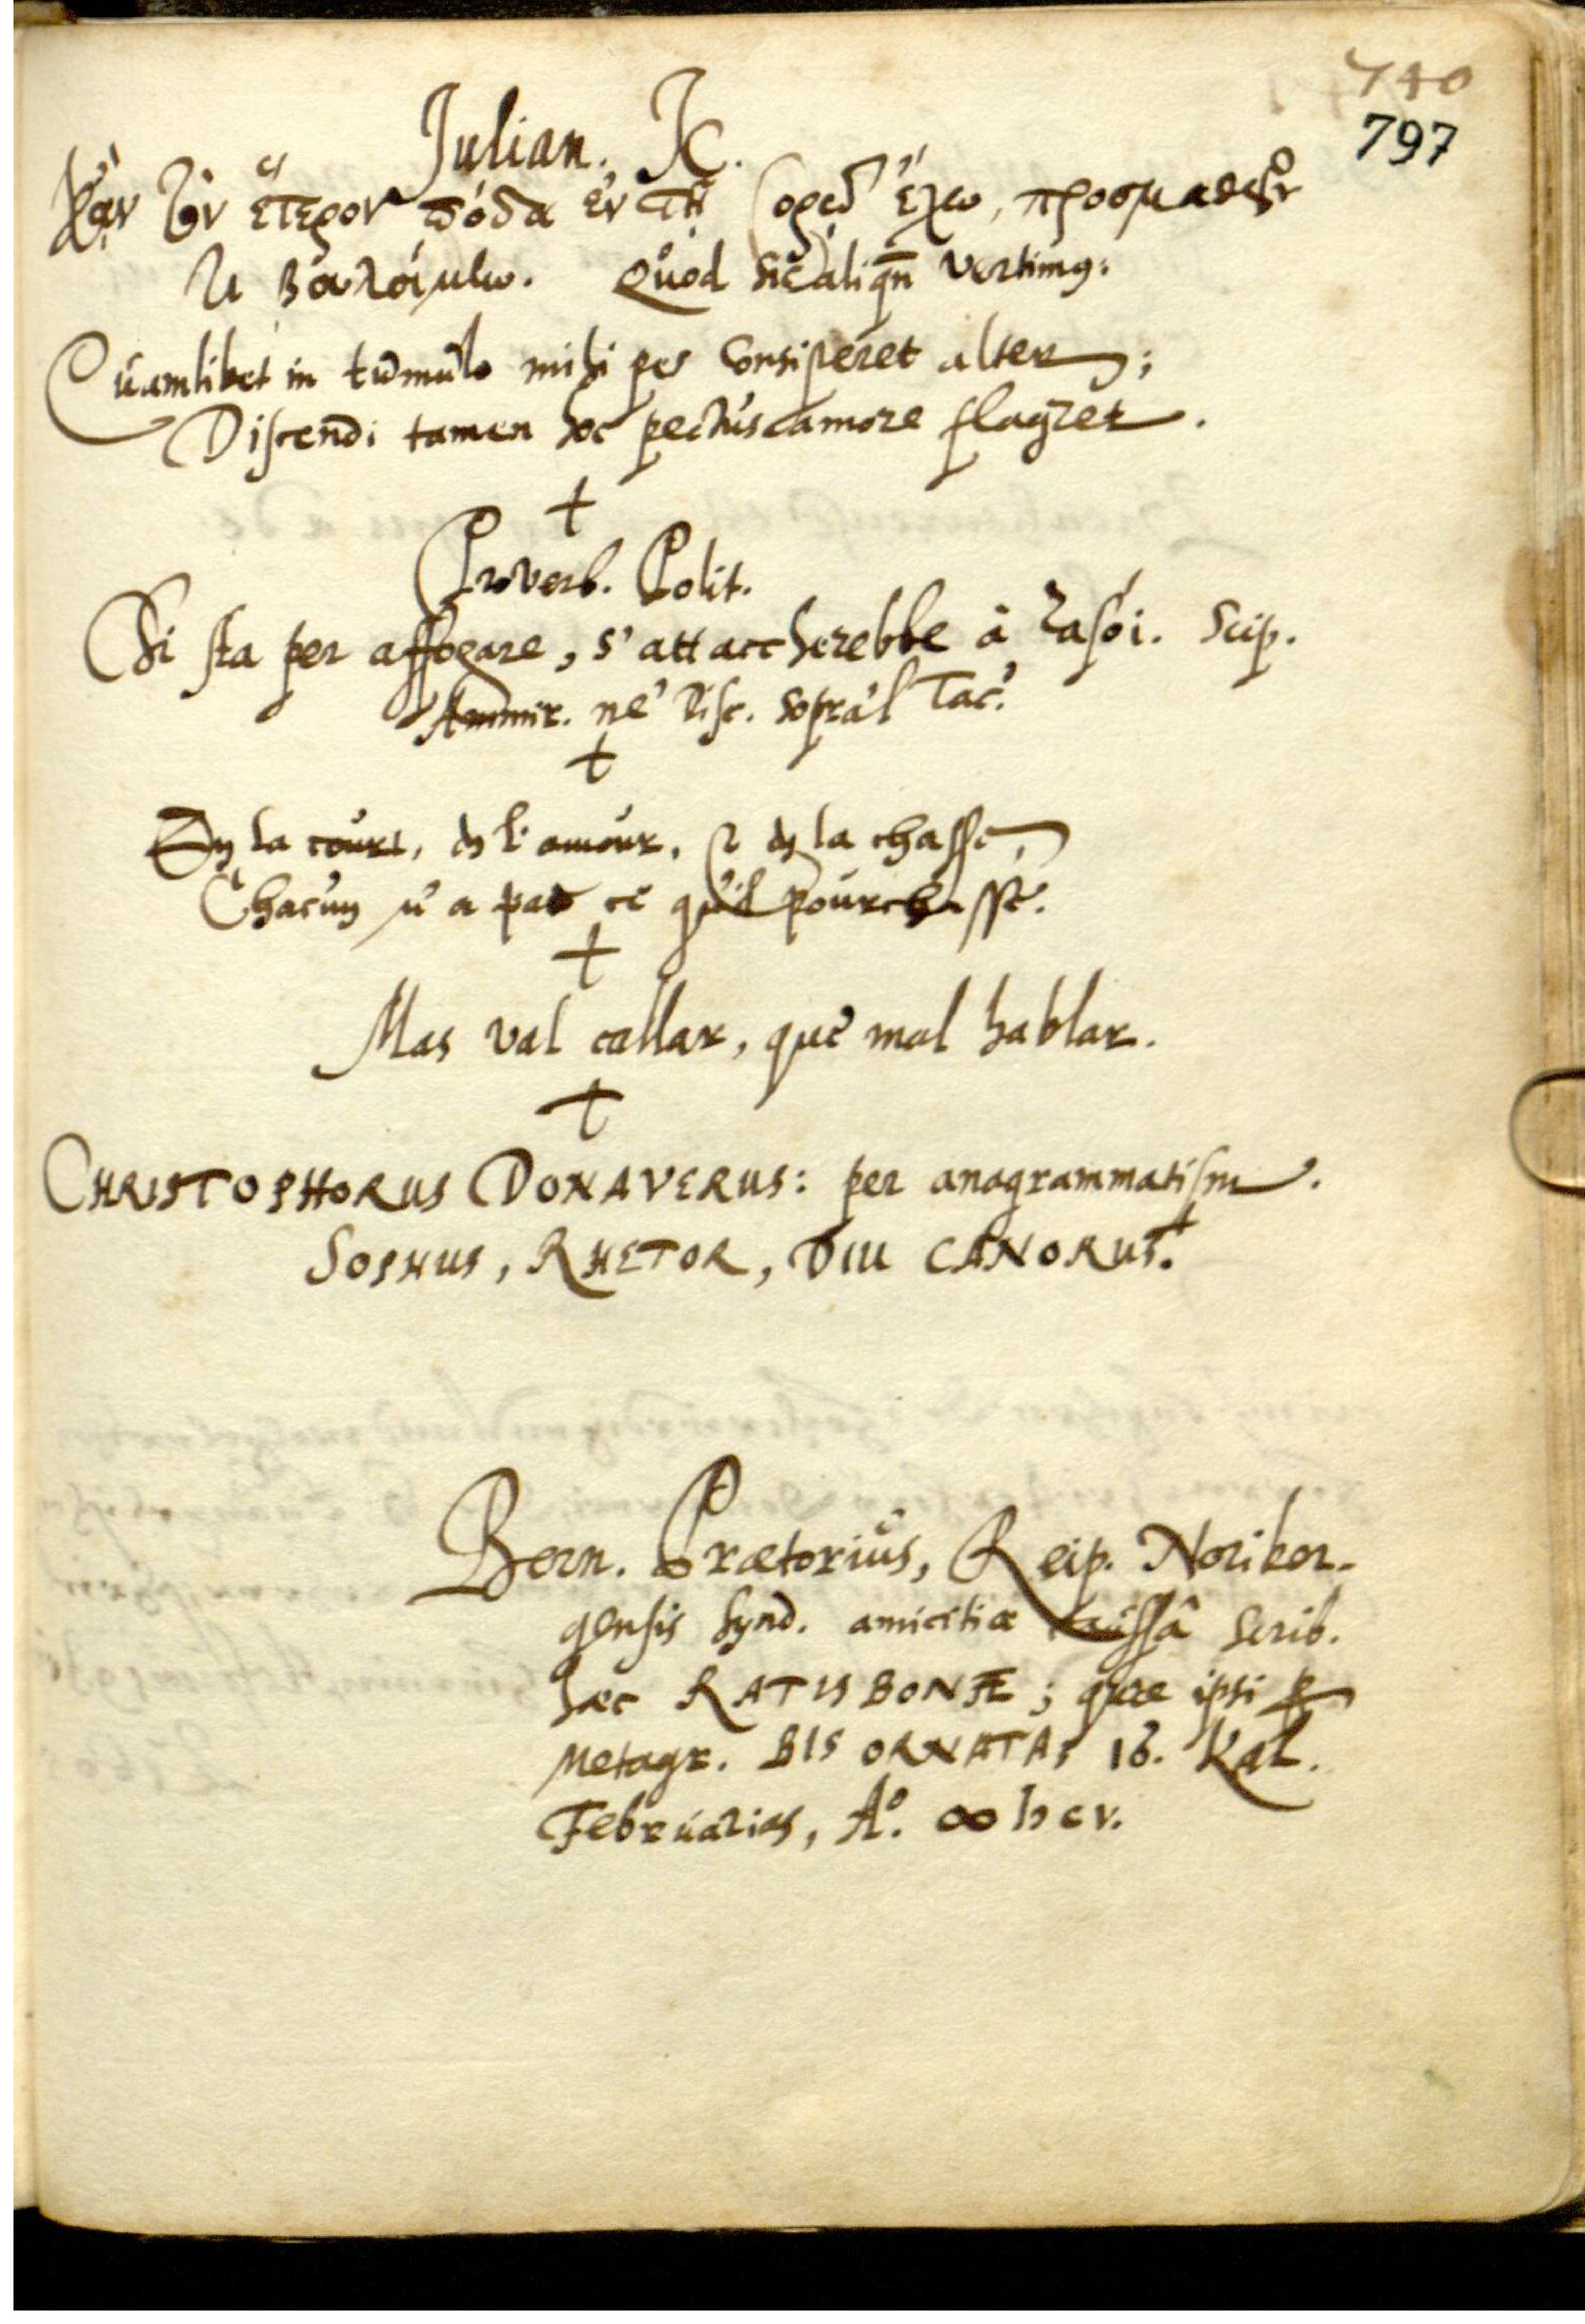 740
797
Julian. JC.
Κἂν τὸν ἕτερον πόδα ἐν τῇ σορῷ ἔχω, προσμαθεῖν
τι βουλοίμην. Quod sic aliqn̄ vertimus:
Quamlibet in tumulo mihi pes consisteret alter;
Discendi tamen hoc pectus amore flagret.
+
Proverb. Polit.
Chi sta per affogare, s' attaccherebbe à rasoi. Scip.
Ammir. ne' Disc. sopra'l Tac.
+
En la court, en l'amour, & en la chasse,
Chacun n'a pas ce qu'il pourchasse.
+
Mas val callar, que mal hablar.
+
CHRISTOPHORUS DONAVERUS: per anagrammatism.
SOPHUS, RHETOR, DIU CANORUS.
Bern. Prætorius, Reip. Noriber-
gensis Synd. amicitiæ caussâ scrib.
hæc RATISBONÆ; quæ ipsi p
Metagr. BIS ORNATA; 16. Kal.
Februarias, Aº. ∞ IↃ CV.